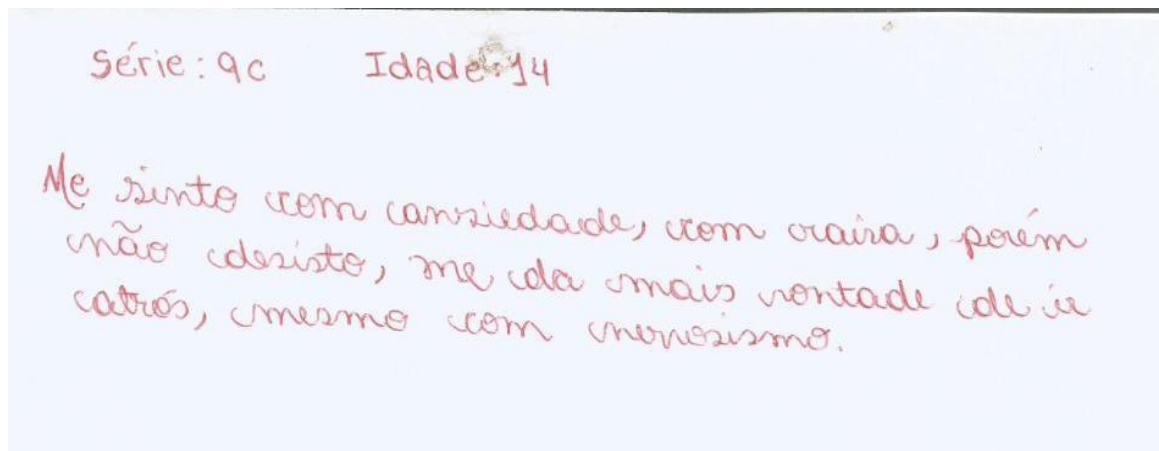 Série: 9c Idade: 14
Me sinto com ansiedade, com raiva, porém
não desisto, me da mais vontade de ir
atrás, mesmo com nervosismo.